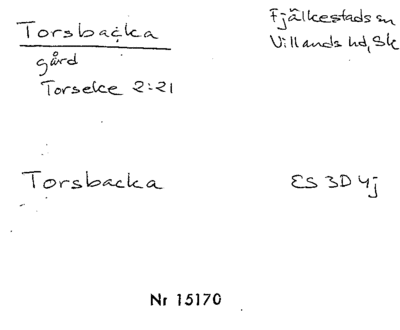 Torsbacka
Fjälkestads sn
Villands hd, Sk
gård
Torseke 2:21
Torsbacka
ES 3D 4j
Nr 15170